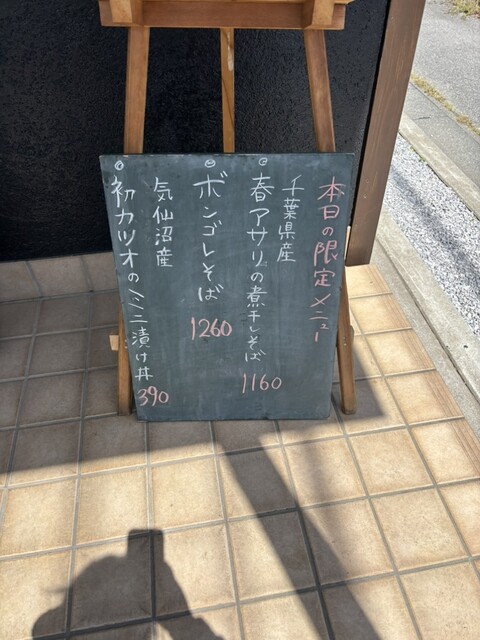 本日の限定メニュー
千葉県産
春アサリの煮干しそば
1160
ボンゴレそば
1260
気仙沼産
初カツオのミニ漬け丼
390